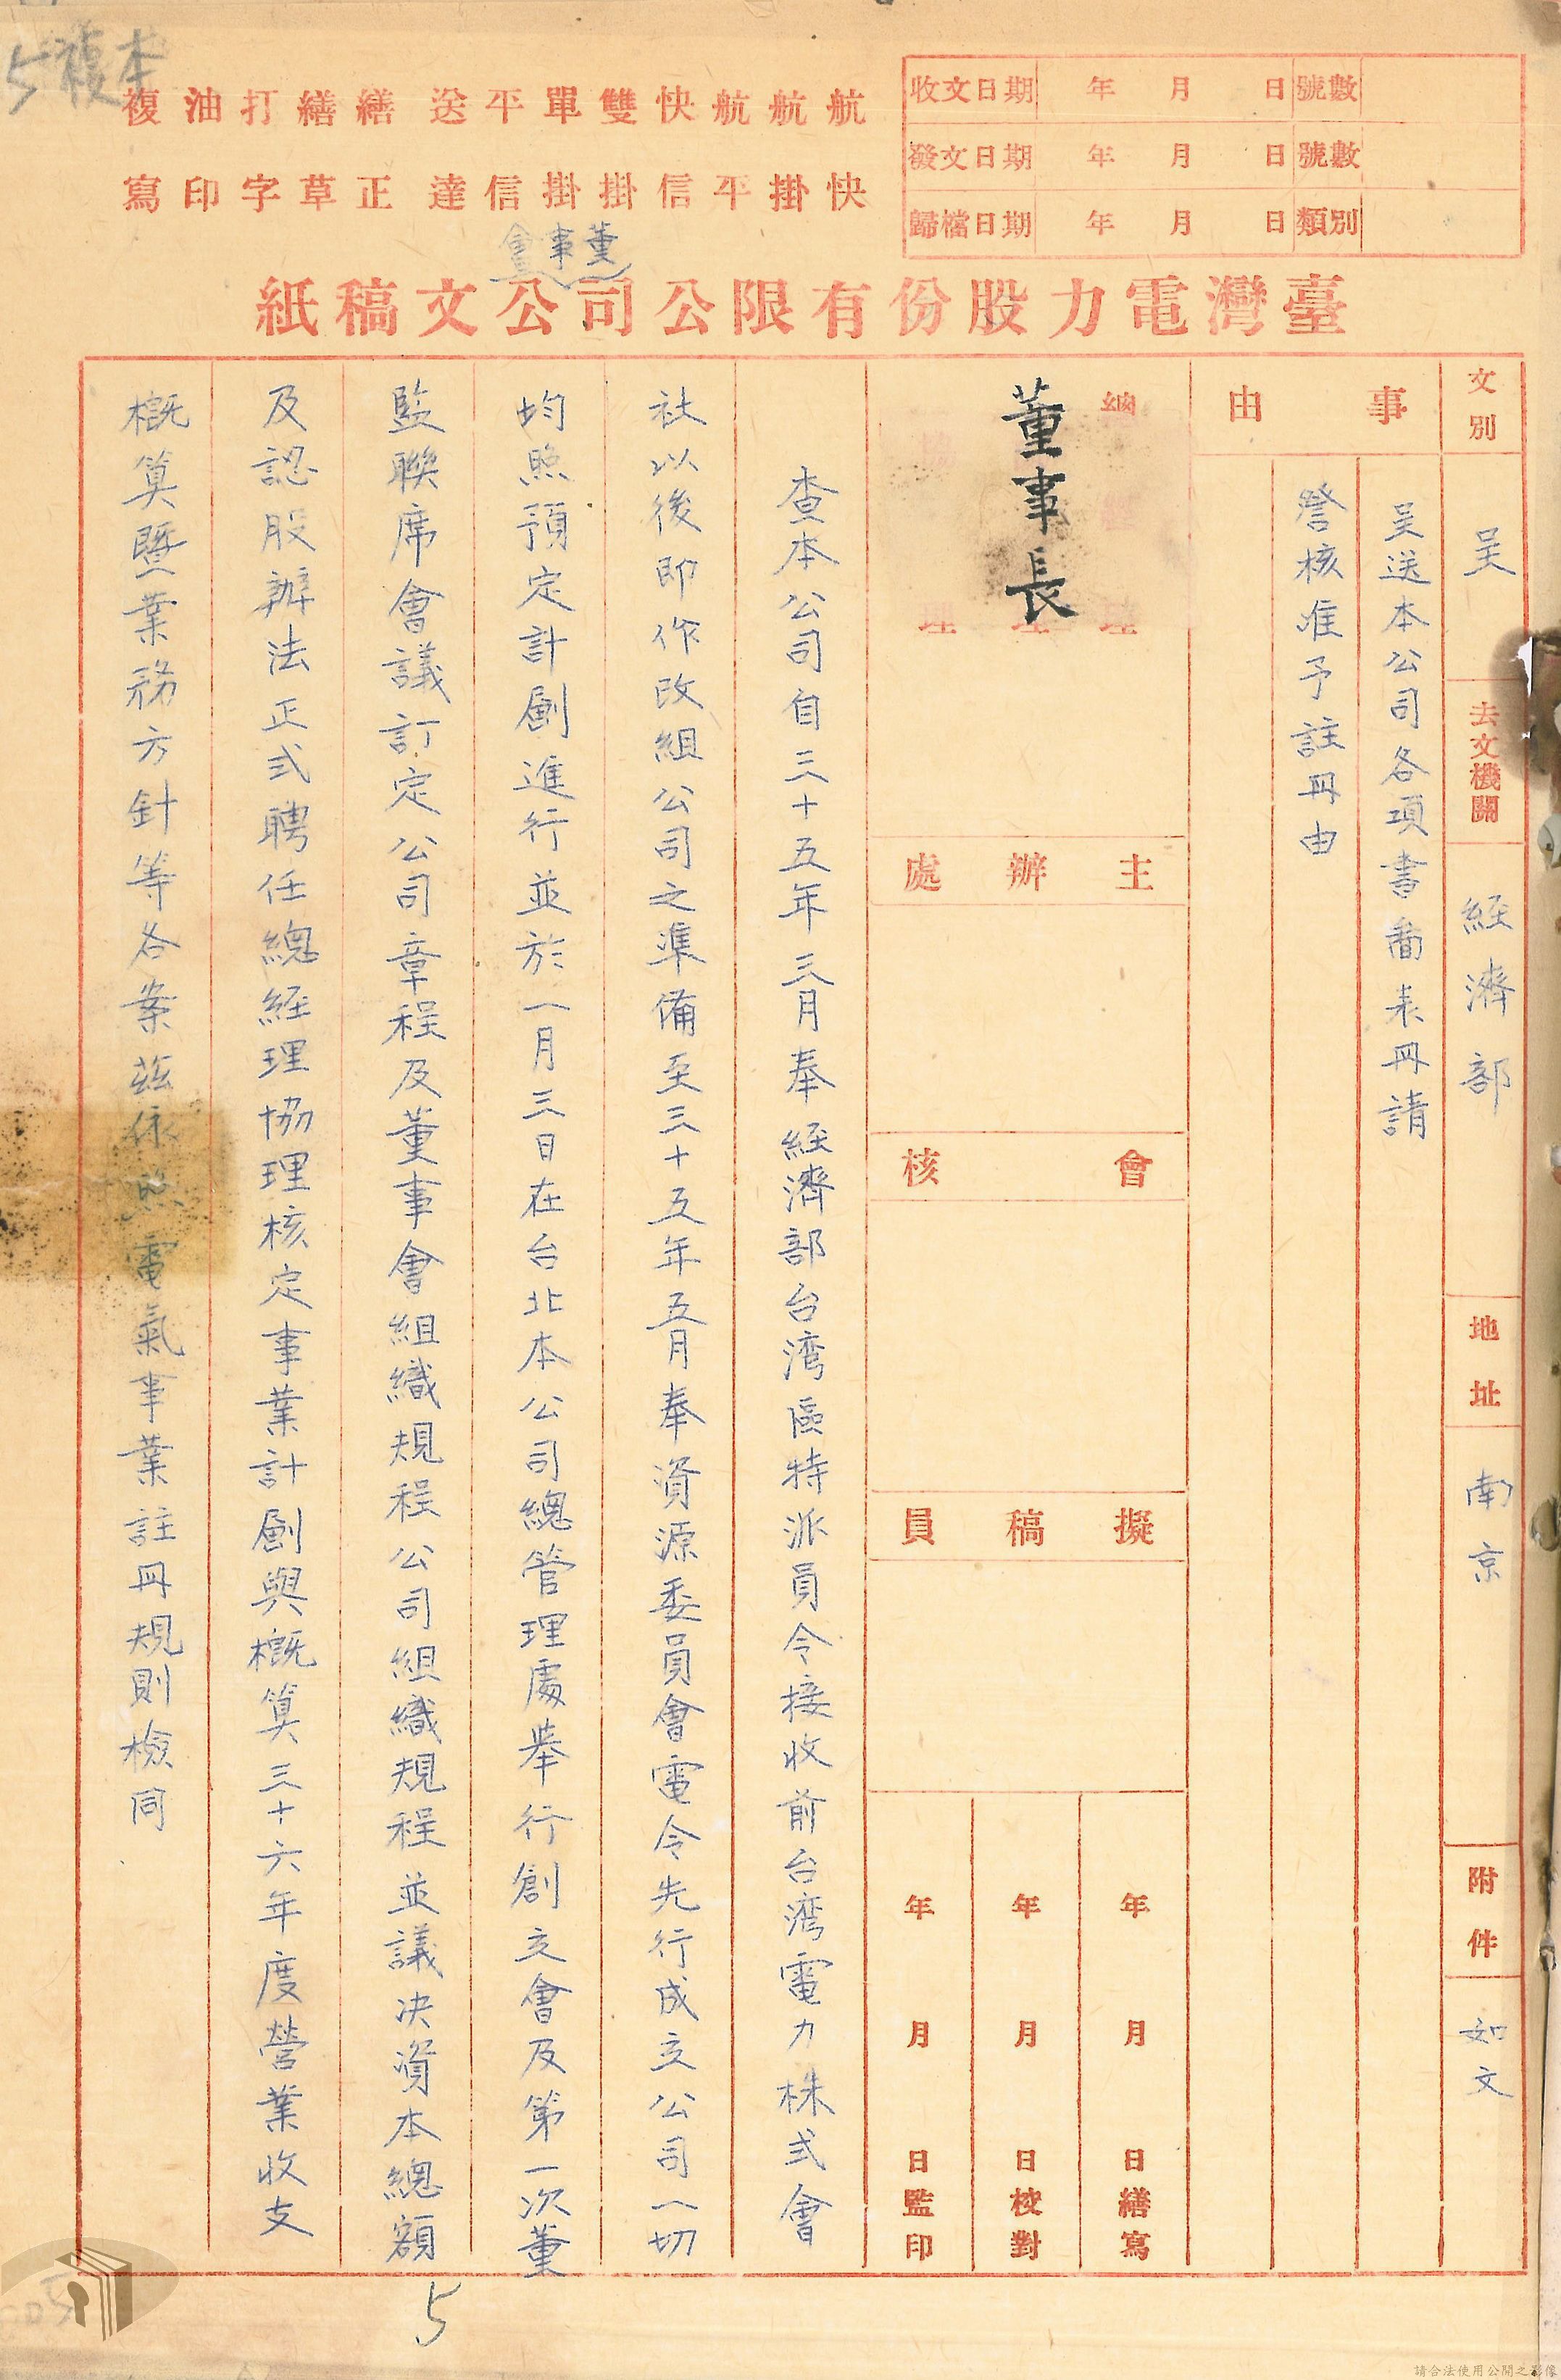 複本
5
航快
航掛
航平
快信
雙掛
單掛
平信
送達
繕正
繕草
打字
油印
複寫
收文日期 年 月 日 號數
發文日期 年 月 日 號數
歸檔日期 年 月 日 類別
董事會
臺灣電力股份有限公司公文稿紙
文別 呈 去文機關 經濟部 地址 南京 附件 如文
事由
呈送本公司各項書圖表冊請
詧核准予註冊由
總經理
理
協理
董事長
主辦處
會核
擬稿員
年 月 日繕寫
年 月 日校對
年 月 日監印
查本公司自三十五年三月奉經濟部台湾區特派員令接收前台湾電力株式會
社以後即作改組公司之準備至三十五年五月奉資源委員會電令先行成立公司一切
均照預定計劃進行並於一月三日在台北本公司總管理處舉行創立會及第一次董
監聯席會議訂定公司章程及董事會組織規程公司組織規程並議決資本總額
及認股辦法正式聘任總經理協理核定事業計劃與概算三十六年度營業收支
概算暨業務方針等各案茲依照電氣事業註冊規則檢同
5
005
請合法使用公開之影像